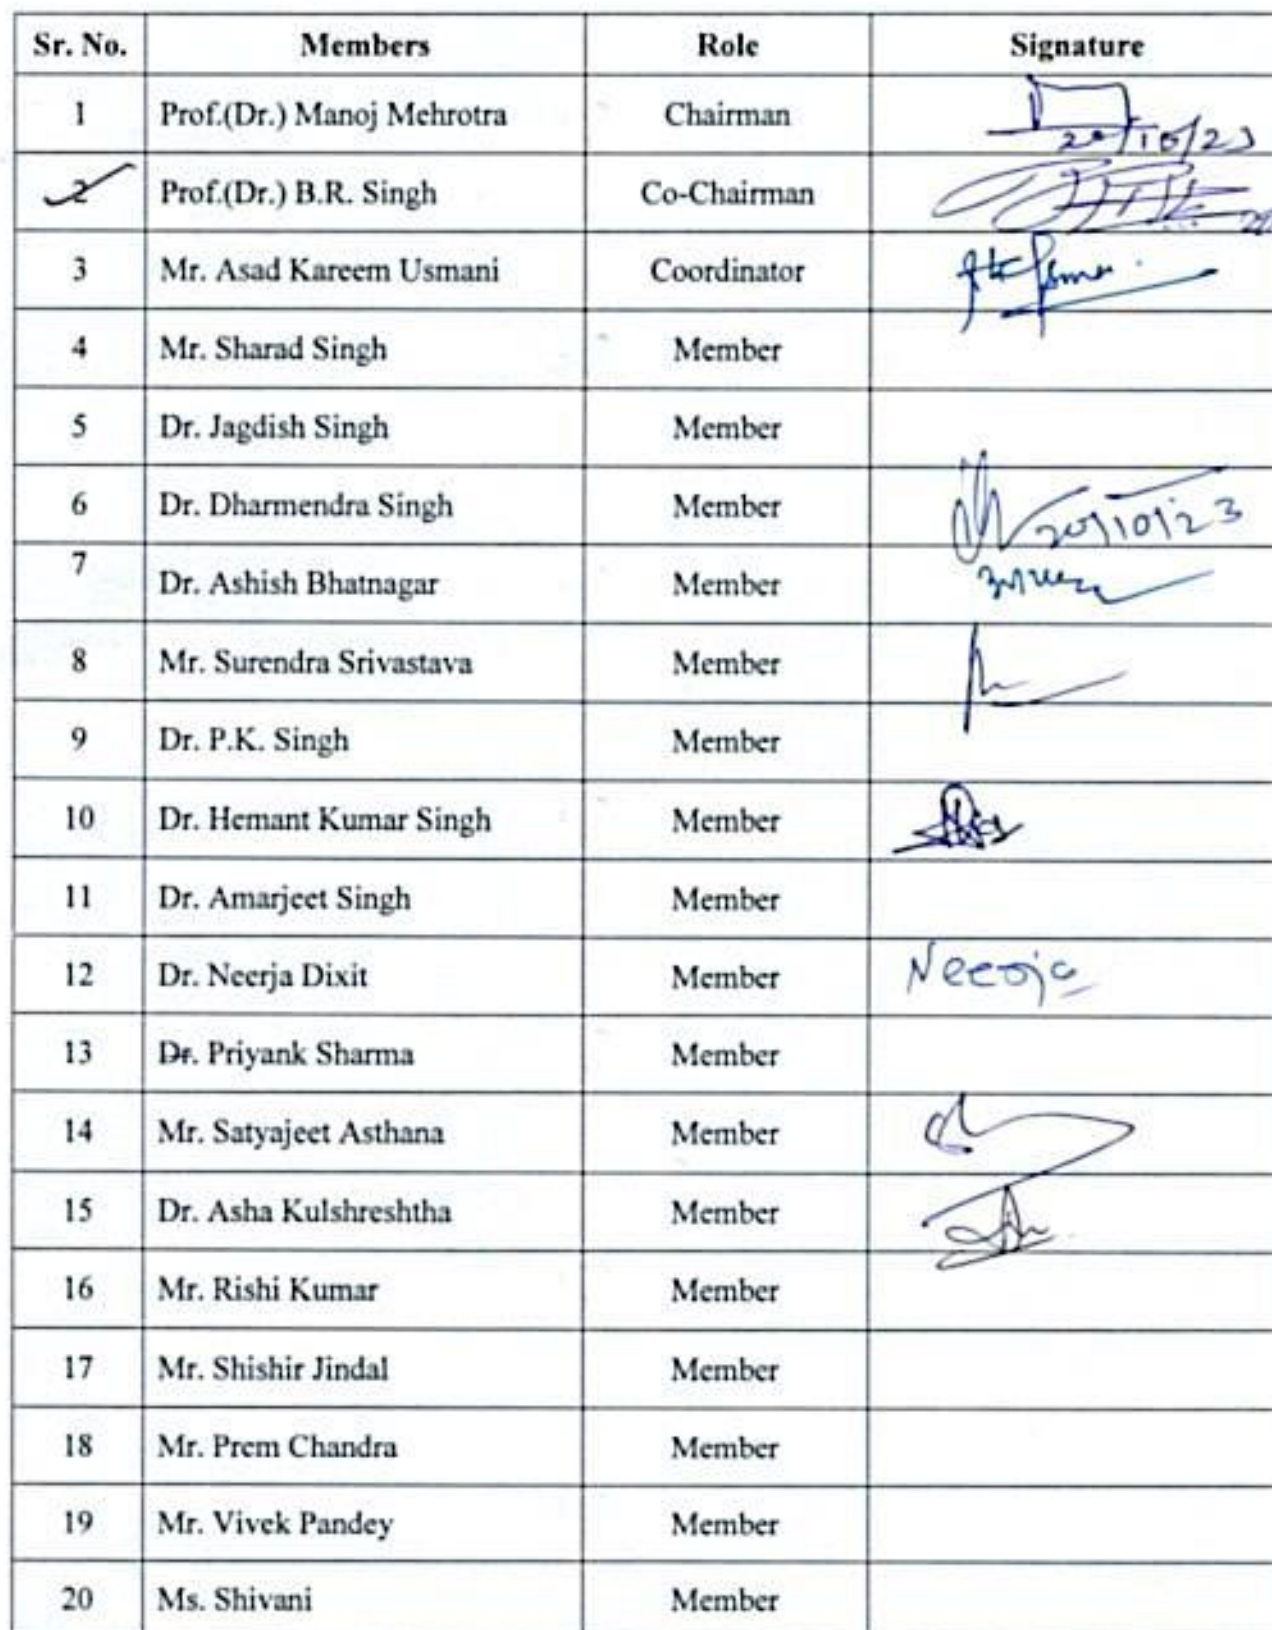 Sr. No. Members Role Signature
1 Prof.(Dr.) Manoj Mehrotra Chairman 20/10/23
2 Prof.(Dr.) B.R. Singh Co-Chairman
3 Mr. Asad Kareem Usmani Coordinator
4 Mr. Sharad Singh Member
5 Dr. Jagdish Singh Member
6 Dr. Dharmendra Singh Member 20/10/23
7 Dr. Ashish Bhatnagar Member
8 Mr. Surendra Srivastava Member
9 Dr. P.K. Singh Member
10 Dr. Hemant Kumar Singh Member
11 Dr. Amarjeet Singh Member
12 Dr. Neerja Dixit Member Neerja
13 Dr. Priyank Sharma Member
14 Mr. Satyajeet Asthana Member
15 Dr. Asha Kulshreshtha Member
16 Mr. Rishi Kumar Member
17 Mr. Shishir Jindal Member
18 Mr. Prem Chandra Member
19 Mr. Vivek Pandey Member
20 Ms. Shivani Member